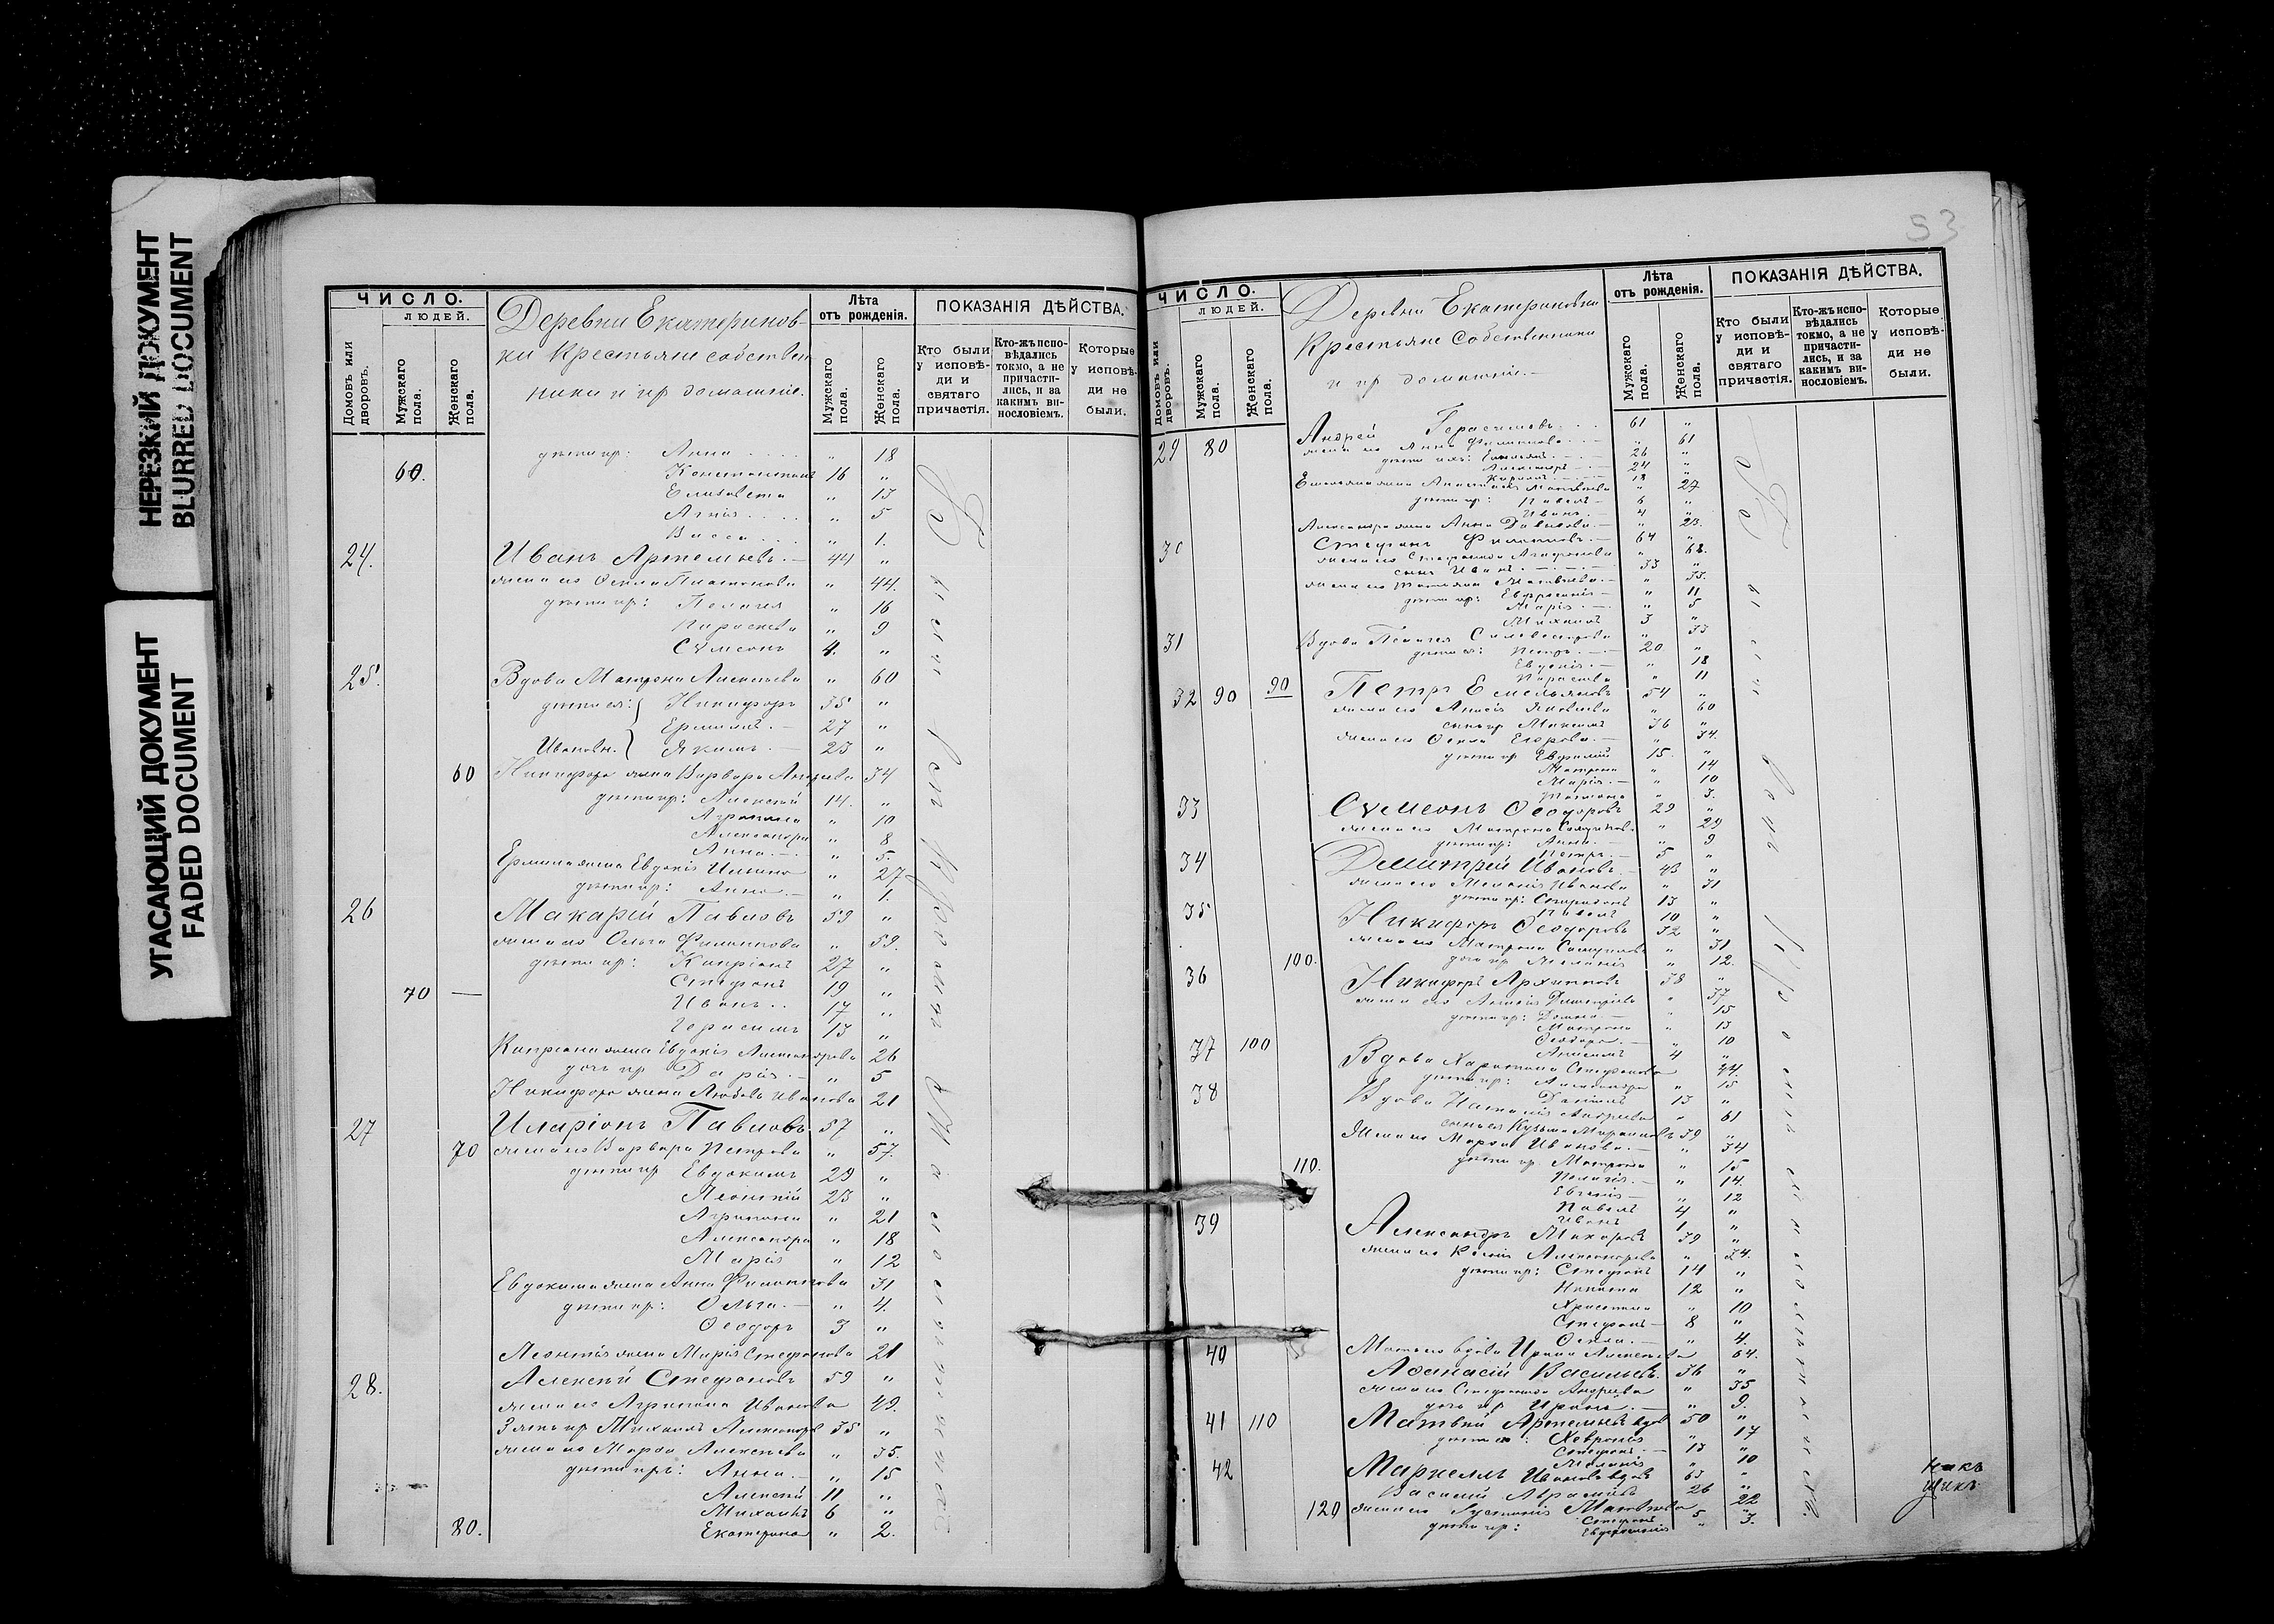 НЕРЕЗКИЙ ДОКУМЕНТ
BLURRED DOCUMENT
УГАСАЮЩИЙ ДОКУМЕНТ
FADED DOCUMENT
ЧИСЛО.
ЛЮДЕЙ.
Домовъ или дворовъ.
Мужскаго пола.
Женскаго пола.
Деревни Екатеринов-
ки крестьяне собствен
ники и ихъ домашніе.
Лѣта
отъ рожденія.
Мужскаго пола.
Женскаго пола.
ПОКАЗАНІЯ ДѢЙСТВА.
Кто были
у исповѣ-
ди и
святаго
причастія.
Кто-жъ испо-
вѣдались
токмо, а не
причасти-
лись, и за
какимъ ви-
нословіемъ.
Которые
у исповѣ-
ди не
были.
дѣти ихъ: Анна " 18
60. Константинъ 16 "
Елизавета " 13
Агнія " 5
Васса " 1.
24. Иванъ Артемьевъ. 44 "
жена его Ѳекла Платонова " 44.
дѣти ихъ: Пелагея " 16
Параскева " 9
Сѵмеонъ 4. "
25. Вдова Матрона Алексѣева " 60
дѣти ея: Никифоръ 35 "
Ермилъ 27 "
Ивановы. Якимъ 23 "
60 Никифора жена Варвара Андреева 34
дѣти ихъ: Алексѣй 14. "
Агрипина " 10
Александра " 8
Анна " 5.
Ермила жена Евдокія Ильина " 27
дѣти ихъ: Анна " 1.
26 Макарій Павловъ 59 "
жена его Ольга Филиппова " 59.
дѣти ихъ: Кипріянъ 27 "
Стефанъ 19 "
70 — Иванъ 17 "
Герасимъ 13 "
Кипріяна жена Евдокія Александрова 26
дочь ихъ Дарія " 5
Никифора жена Любовь Иванова 21
27 Иларіонъ Павловъ 57 "
70 жена его Варвара Петрова " 57.
дѣти ихъ Евдокимъ 29 "
Леонтій 23 "
Агрипина " 21
Александра " 18
Марія " 12
Евдокима жена Анна Филиппова 31
дѣти ихъ: Ольга " 4.
Ѳеодоръ 3 "
Леонтія жена Марія Стефанова 21
28. Алексѣй Стефановъ 59 "
жена его Агрипина Иванова 49.
Зять ихъ Михаилъ Александровъ 35 "
жена его Марѳа Алексѣева " 35.
дѣти ихъ: Анна " 15
Алексѣй 11 "
Михаилъ 6 "
80. Екатерина " 2.
53
ЧИСЛО.
ЛЮДЕЙ.
Домовъ или дворовъ.
Мужскаго пола.
Женскаго пола.
Деревни Екатериновки
Крестьяне Собственники
и ихъ домашніе.
Лѣта
отъ рожденія.
Мужскаго пола.
Женскаго пола.
ПОКАЗАНІЯ ДѢЙСТВА.
Кто были
у исповѣ-
ди и
святаго
причастія.
Кто-жъ испо-
вѣдались
токмо, а не
причасти-
лись, и за
какимъ ви-
нословіемъ.
Которые
у исповѣ-
ди не
были.
29 80 Андрей Герасимовъ 61 "
жена его Анна Филиппова " 61
дѣти ихъ: Емельянъ 26 "
Александръ 24 "
18 "
Емельяна жена Анастасія Матвѣева " 27
дѣти ихъ: Павелъ 6 "
Иванъ 4 "
Александра жена Анна Давидова " 23.
30 Стефанъ Филипповъ 64 "
жена его Стефанида Агафонова " 62.
сынъ Иванъ 33 "
жена его Татіана Матвѣева " 33.
дѣти ихъ: Евфросинія " 11
Марія " 5
Михаилъ 3 "
31 Вдова Пелагея Силвестрова " 53
дѣти ея: Петръ 20 "
Евдокія " 18
Параскева " 11
32 90 90 Петръ Емельяновъ 54 "
жена его Анисія Яковлева " 60
сынъ ихъ Максимъ 36 "
жена его Ѳекла Егорова " 34.
дѣти ихъ Евфимій 15. "
Матрона " 14
Марія " 10
Татіана " 3.
33 Сѵмеонъ Ѳеодоровъ 29 "
жена его Матрона " 29
дѣти ихъ: Анна " 9
Петръ 5 "
34 Димитрій Ивановъ 43 "
жена его Меланія Иванова " 31
дѣти ихъ: Спиридонъ 13 "
Павелъ 10 "
35 Никифоръ Ѳеодоровъ 32 "
жена его Матрона " 31
100. дочь ихъ Меланія " 12.
36 Никифоръ Архиповъ 38 "
жена его Анисія Димитріева " 37
дѣти ихъ: Домна " 15
Матрона " 13
Ѳеодора " 10
100 Анисимъ 4 "
37 Вдова Харитина Стефанова " 44.
дѣти ихъ: Александра " 15
Даніилъ 13 "
38 Вдова Наталія Андреева " 61
сынъ ея Кузьма 39 "
жена его Марѳа Иванова " 34
110. дѣти ихъ Матрона " 15
Пелагія " 14.
Евгенія " 12
Павелъ 4 "
Иванъ 1 "
39 Александръ Макаровъ 39 "
жена его Ксенія Александрова " 34.
дѣти ихъ: Стефанъ 14 "
Никита 12 "
Христина " 10
Стефанъ 8 "
Ѳекла " 4.
Мать его вдова Ирина Алексѣева 64.
40 Аѳанасій Васильевъ 36 "
жена его Стефанида Андреева " 35
дочь ихъ Ирина " 9.
41 110 Матвѣй Артемьевъ вдов 50 "
дѣти его: Хевронія " 17
Стефанъ 13 "
Меланія " 10
42 Маркеллъ Ивановъ вдов 65 "
Василій 26 "
120 жена его Іустинія Матвѣева " 22
дѣти ихъ: Стефанъ 5 "
Евфросинія " 3.